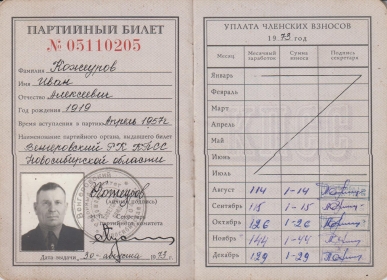 ПАРТИЙНЫЙ БИЛЕТ
№ 05110205
Фамилия Кожеуров
Имя Иван
Отчество Алексеевич
Год рождения 1919
Время вступления в партию Апрель 1957г.
Наименование партийного органа, выдавшего билет
Венгеровский РК КПСС
Новосибирской области
Кожеуров
(личная подпись)
М. П. Секретарь
партийного комитета
Дата выдачи „20" августа 1973г.
УПЛАТА ЧЛЕНСКИХ ВЗНОСОВ
1973 год
Месяц Месячный заработок Сумма взноса Подпись секретаря
Январь
Февраль
Март
Апрель
Май
Июнь
Июль
Август 114 1-14
Сентябрь 115 1-15
Октябрь 126 1-26
Ноябрь 144 1-44
Декабрь 129 1-29